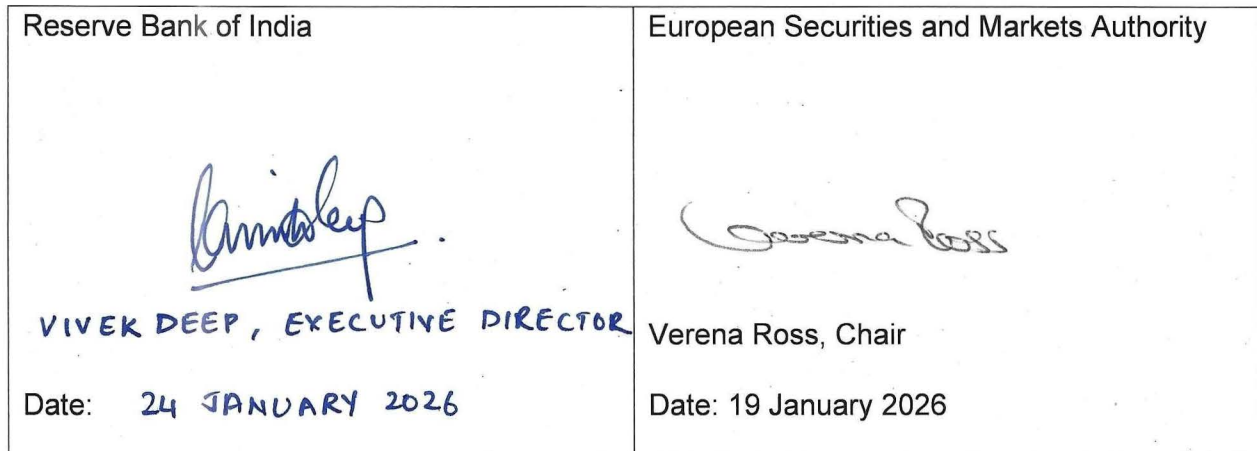 Reserve Bank of India
VIVEK DEEP, EXECUTIVE DIRECTOR
Date: 24 JANUARY 2026
European Securities and Markets Authority
Verena Ross
Verena Ross, Chair
Date: 19 January 2026